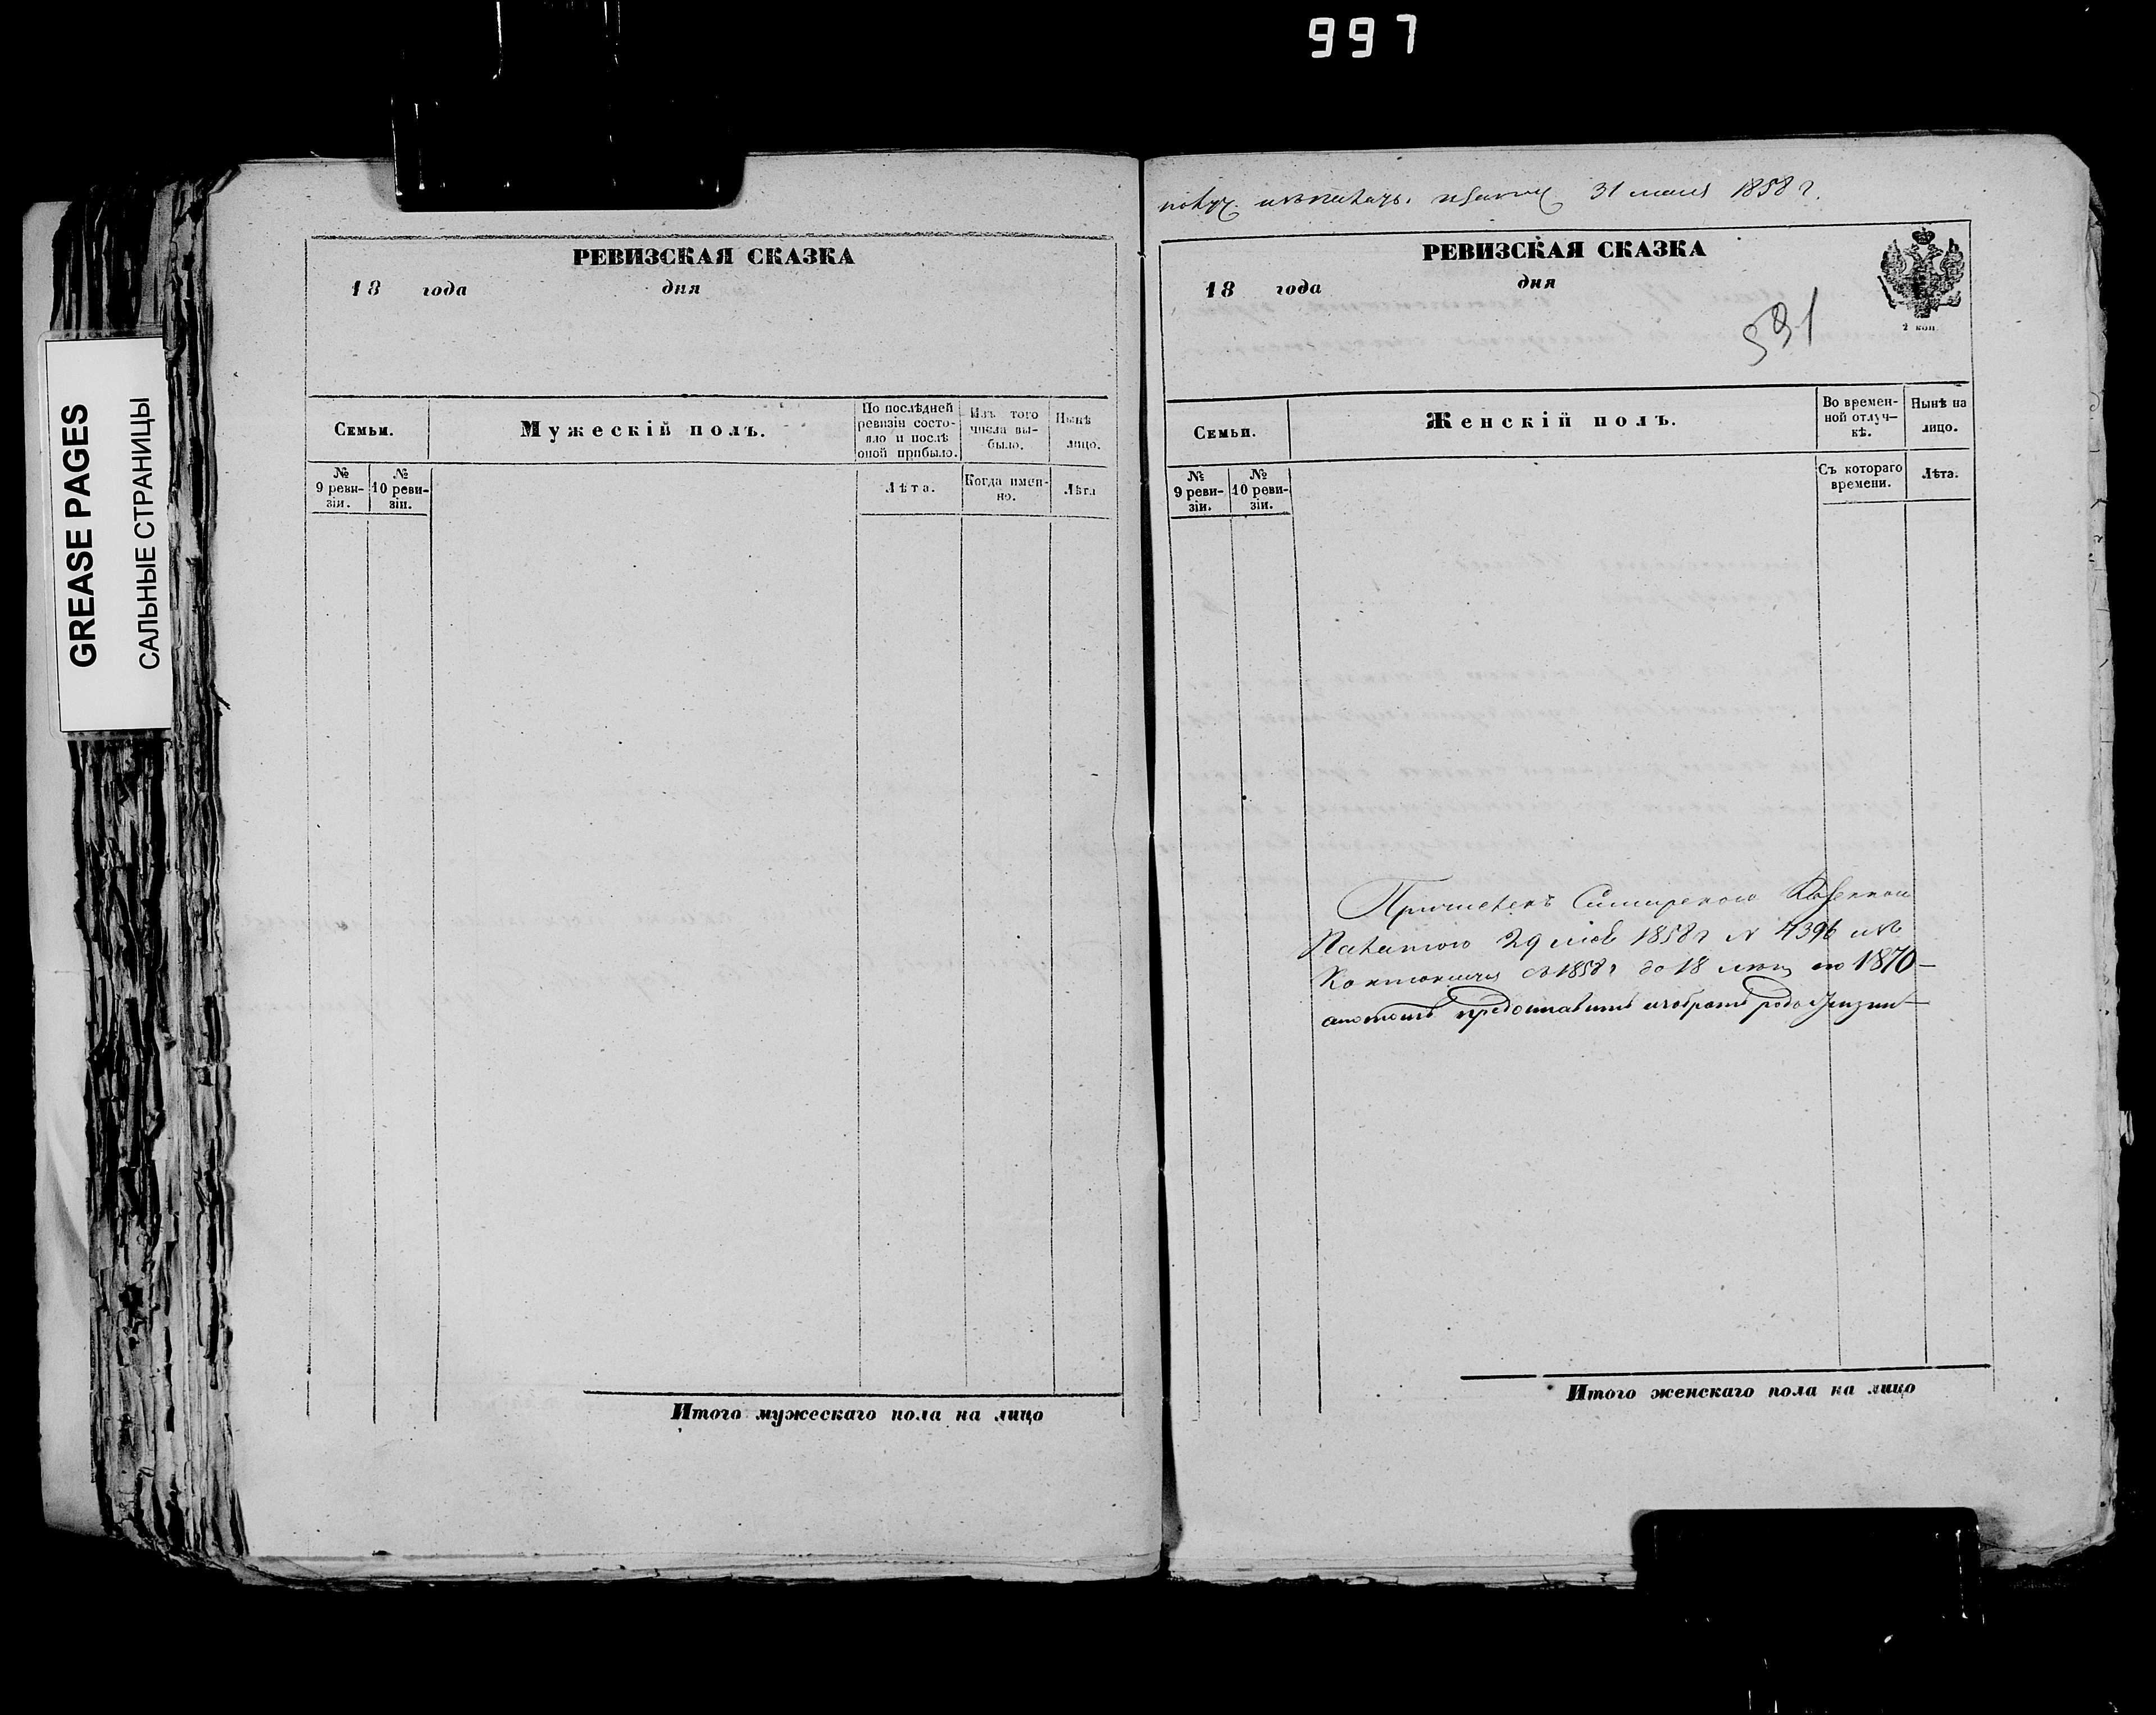 997
GREASE PAGES
САЛЬНЫЕ СТРАНИЦЫ
РЕВИЗСКАЯ СКАЗКА
18 года дня
Семьи.
Мужескій полъ.
По послѣдней
ревизіи состо-
яло и послѣ
оной прибыло.
Изъ того
числа вы-
было.
Нынѣ
лицо.
№
9 реви-
зіи.
№
10 реви-
зіи.
Лѣта.
Когда имен-
но.
Лѣта
Итого мужескаго пола на лицо
31 1858 г.
РЕВИЗСКАЯ СКАЗКА
18 года дня
2 коп.
Семьи.
Женскій полъ.
Во времен-
ной отлуч-
кѣ.
Нынѣ на
лицо.
№
9 реви-
зіи.
№
10 реви-
зіи.
Съ котораго
времени.
Лѣта.
Причисленъ Казенною
Палатою 29 1858 г N 4396
съ 1858 г до 18 1870
предоставить избрать родъ жизни
Итого женскаго пола на лицо